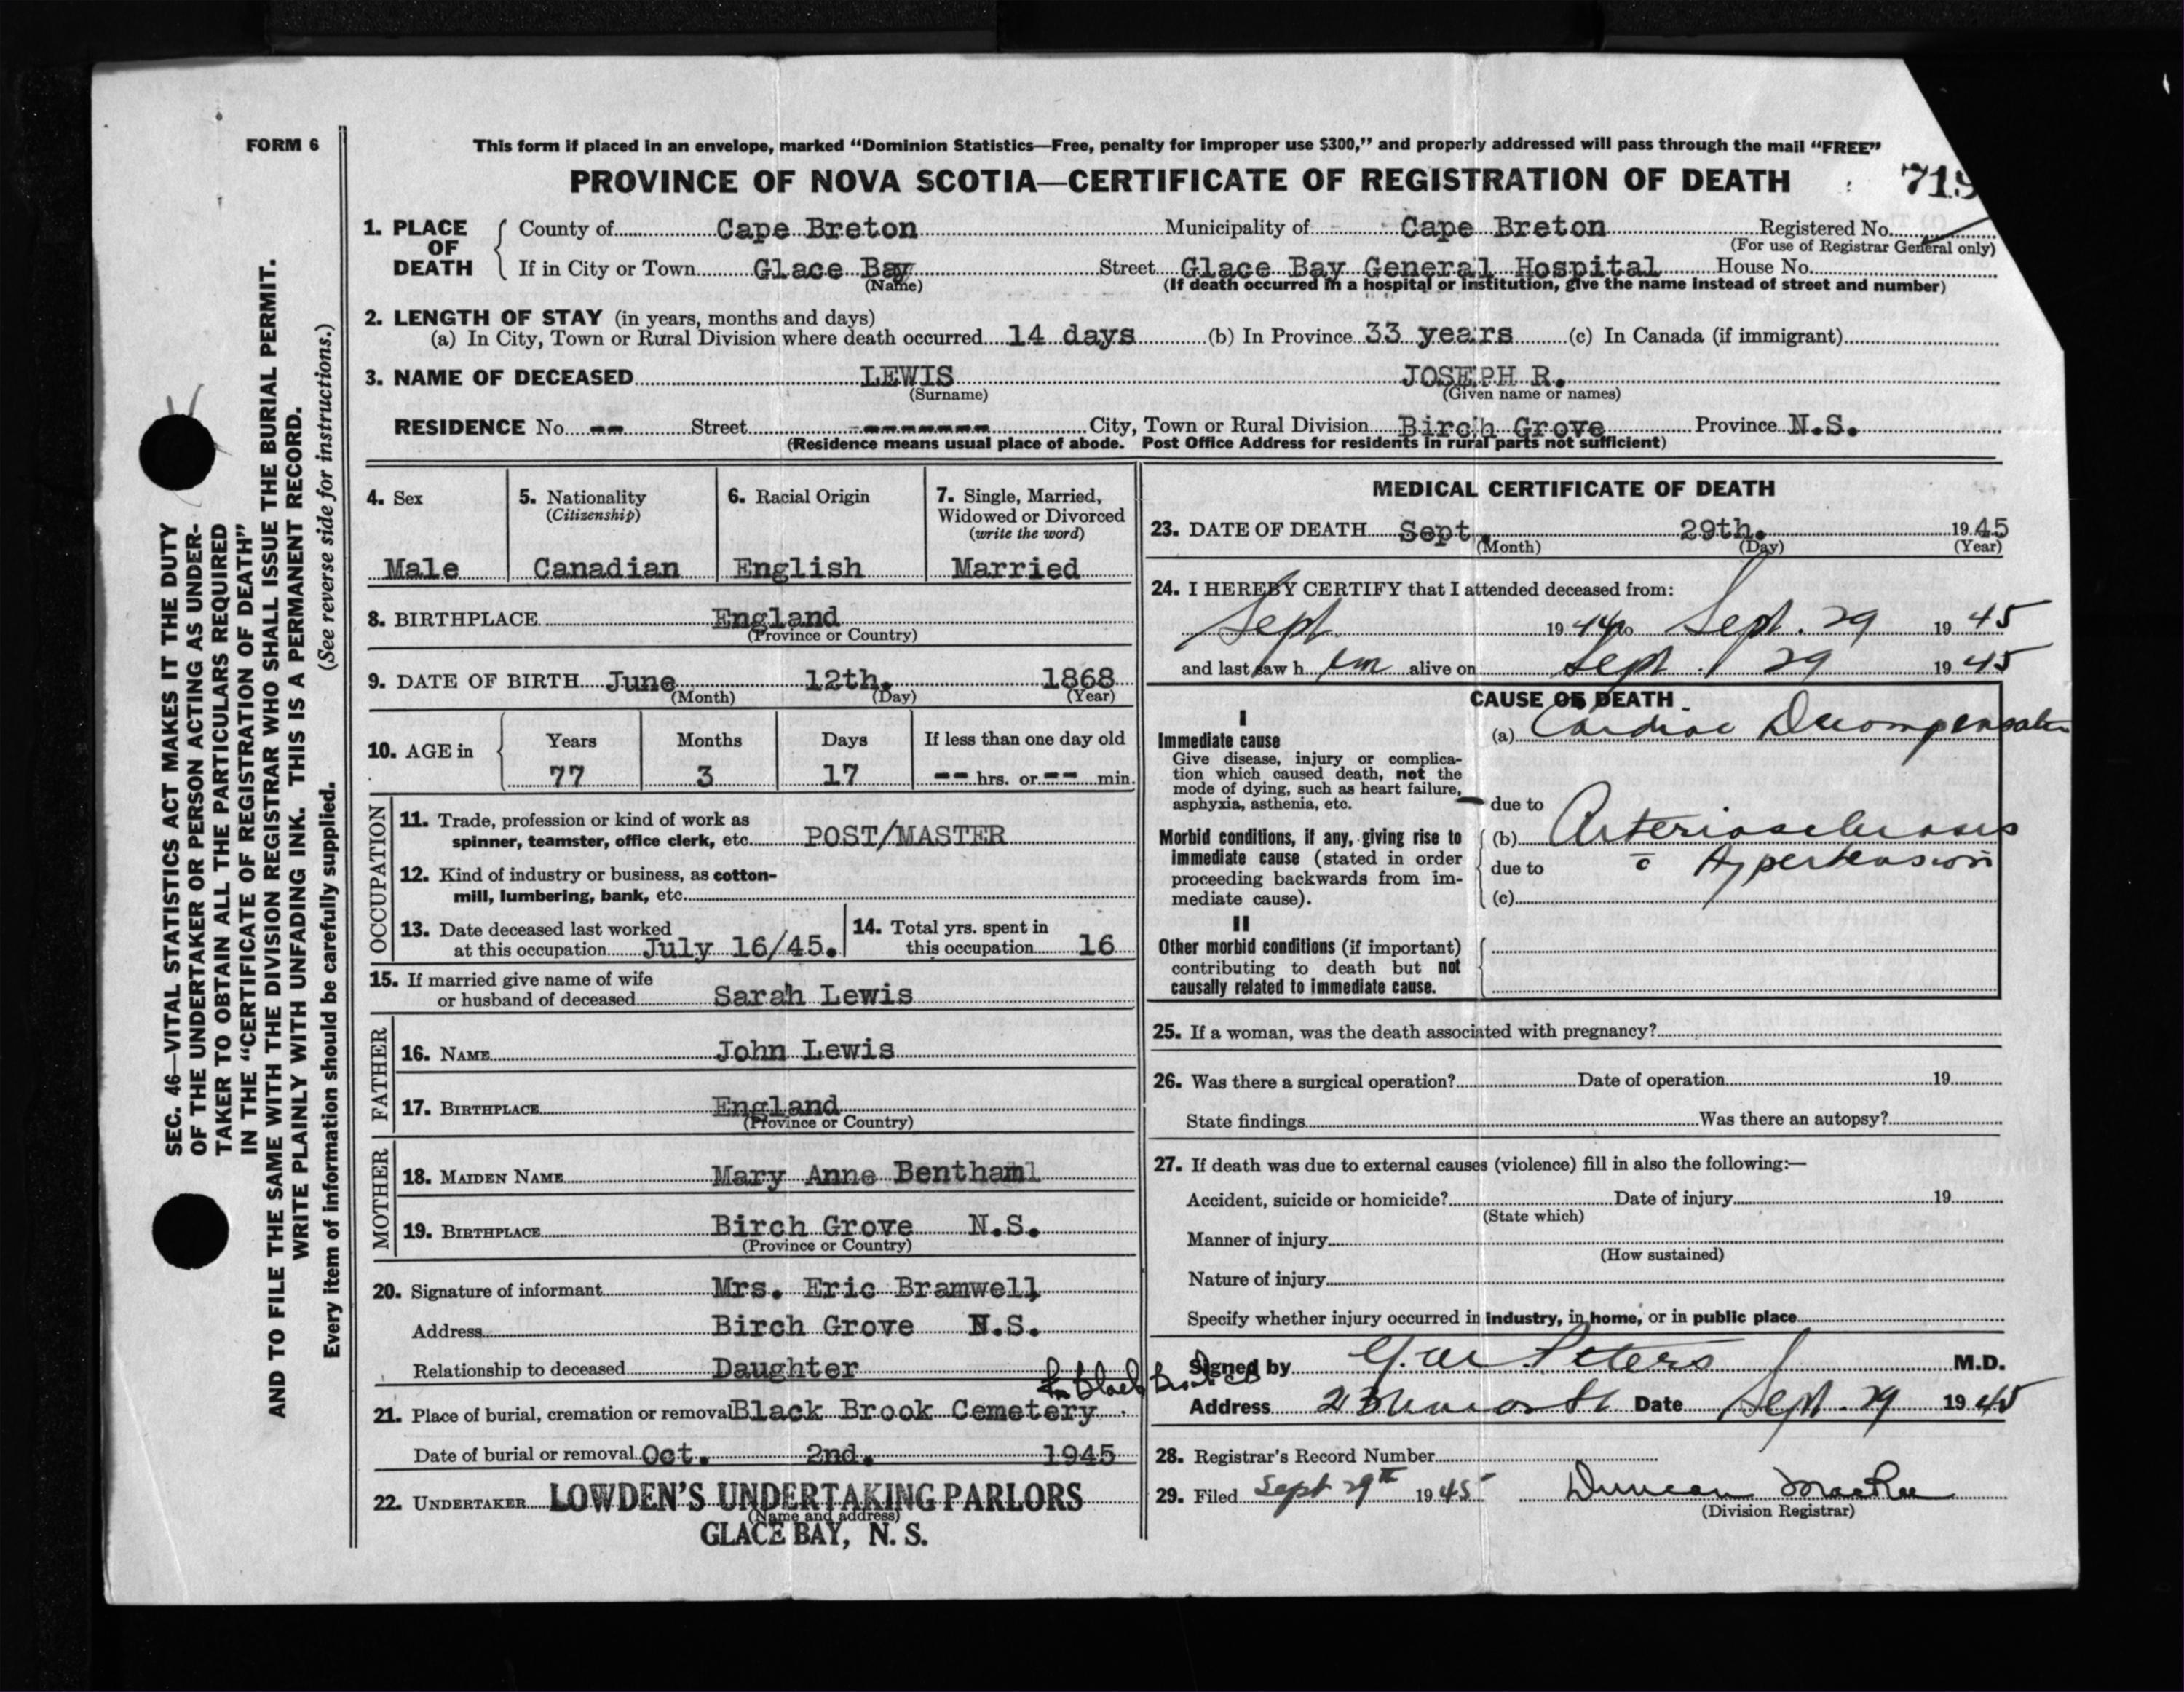 FORM 6
This form if placed in an envelope, marked "Dominion Statistics—Free, penalty for improper use $300," and properly addressed will pass through the mail "FREE"
PROVINCE OF NOVA SCOTIA—CERTIFICATE OF REGISTRATION OF DEATH
719
1. PLACE OF DEATH
County of Cape Breton Municipality of Cape Breton Registered No.
(For use of Registrar General only)
If in City or Town Glace Bay Street Glace Bay General Hospital House No.
(Name) (If death occurred in a hospital or institution, give the name instead of street and number)
2. LENGTH OF STAY (in years, months and days)
(a) In City, Town or Rural Division where death occurred 14 days (b) In Province 33 years (c) In Canada (if immigrant)
3. NAME OF DECEASED LEWIS JOSEPH R.
(Surname) (Given name or names)
RESIDENCE No. -- Street ------- City, Town or Rural Division Birch Grove Province N.S.
(Residence means usual place of abode. Post Office Address for residents in rural parts not sufficient)
4. Sex
Male
5. Nationality
(Citizenship)
Canadian
6. Racial Origin
English
7. Single, Married,
Widowed or Divorced
(write the word)
Married
8. BIRTHPLACE England
(Province or Country)
9. DATE OF BIRTH June 12th. 1868
(Month) (Day) (Year)
10. AGE in
Years Months Days If less than one day old
77 3 17 -- hrs. or -- min.
OCCUPATION
11. Trade, profession or kind of work as
spinner, teamster, office clerk, etc. POST/MASTER
12. Kind of industry or business, as cotton-
mill, lumbering, bank, etc.
13. Date deceased last worked
at this occupation July 16/45.
14. Total yrs. spent in
this occupation 16
15. If married give name of wife
or husband of deceased Sarah Lewis
FATHER
16. NAME John Lewis
17. BIRTHPLACE England
(Province or Country)
MOTHER
18. MAIDEN NAME Mary Anne Bentham
19. BIRTHPLACE Birch Grove N.S.
(Province or Country)
20. Signature of informant Mrs. Eric Bramwell
Address Birch Grove N.S.
Relationship to deceased Daughter
21. Place of burial, cremation or removal Black Brook Cemetery
Date of burial or removal Oct. 2nd. 1945
22. UNDERTAKER LOWDEN'S UNDERTAKING PARLORS
(Name and address)
GLACE BAY, N. S.
MEDICAL CERTIFICATE OF DEATH
23. DATE OF DEATH Sept. 29th. 1945
(Month) (Day) (Year)
24. I HEREBY CERTIFY that I attended deceased from:
Sept. 1944 to Sept. 29 1945
and last saw h im alive on Sept. 29 1945
CAUSE OF DEATH
I
Immediate cause
Give disease, injury or complica-
tion which caused death, not the
mode of dying, such as heart failure,
asphyxia, asthenia, etc.
(a) Cardiac Decompensation
due to
Morbid conditions, if any, giving rise to
immediate cause (stated in order
proceeding backwards from im-
mediate cause).
(b) Arteriosclerosis
due to c̄ Hypertension
(c)
II
Other morbid conditions (if important)
contributing to death but not
causally related to immediate cause.
25. If a woman, was the death associated with pregnancy?
26. Was there a surgical operation? Date of operation 19
State findings Was there an autopsy?
27. If death was due to external causes (violence) fill in also the following:—
Accident, suicide or homicide? Date of injury 19
(State which)
Manner of injury
(How sustained)
Nature of injury
Specify whether injury occurred in industry, in home, or in public place
Signed by Peters M.D.
Address Date Sept. 29 1945
28. Registrar's Record Number
29. Filed Sept 29th 1945 Duncan MacRae
(Division Registrar)
SEC. 46—VITAL STATISTICS ACT MAKES IT THE DUTY
OF THE UNDERTAKER OR PERSON ACTING AS UNDER-
TAKER TO OBTAIN ALL THE PARTICULARS REQUIRED
IN THE "CERTIFICATE OF REGISTRATION OF DEATH"
AND TO FILE THE SAME WITH THE DIVISION REGISTRAR WHO SHALL ISSUE THE BURIAL PERMIT.
WRITE PLAINLY WITH UNFADING INK. THIS IS A PERMANENT RECORD.
Every item of information should be carefully supplied. (See reverse side for instructions.)